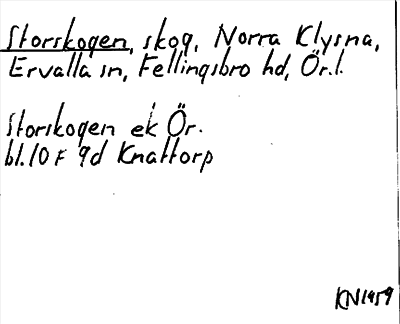 Storskogen, skog, Norra Klysna,
Ervalla sn, Fellingsbro hd, Ör.l.
Storskogen ek Ör.
bl.10 F 9d Knattorp
KN1959